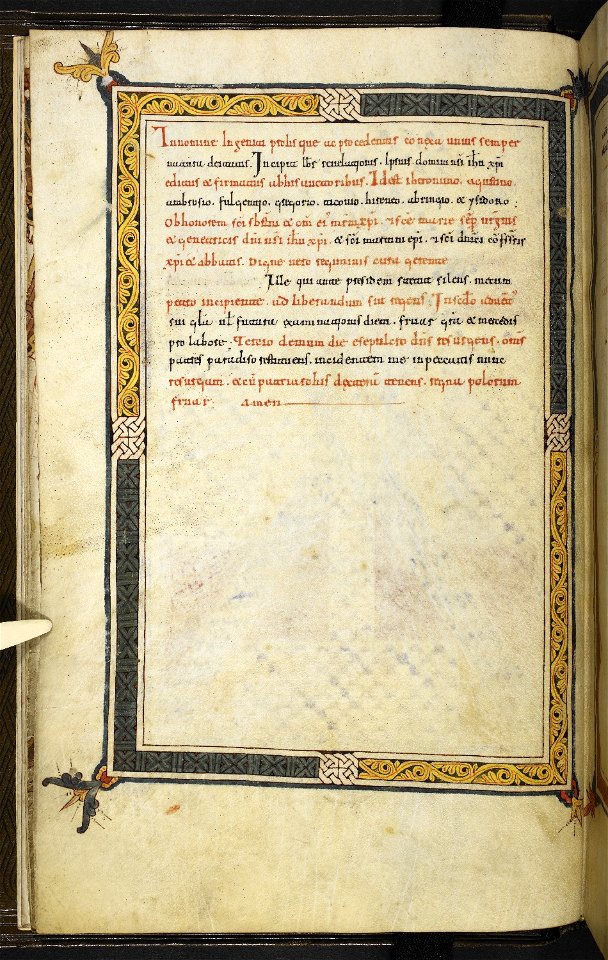 In nomine Ingeniti prolisque ac procedentis conexa unius semper
natura deitatis. Incipit lbr revelationis. Ipsius domini nsi ihu xpi
editus et firmatus ab his auctoribus. Id est iheronimo. agustino.
ambrosio. fulgentio. gregorio. ticonio. hireneo. abringio. et ysidoro.
Ob honorem sci sbstni et cm eius mrm xpi. et sce marie semp urgnis
et genetricis dni nsi ihu xpi. et sci martini epi. et sci dnici cofssris
xpi et abbatis. Digne vero seqmini cura gerente
Ille qui ante presidem stetit silens. metum
peto incipiente. ad liberandum sit regens. In sclo advent
sui qm nl futura examinationis diem. fruar gra et mercedis
pro labore. Tertio demum die e sepulcro dns resurgens. oms
patres paradiso restituens. incidentem me in peccatis nunc
resurgam. et cu patria solis dextera tenens. regna polorum
fruar. amen